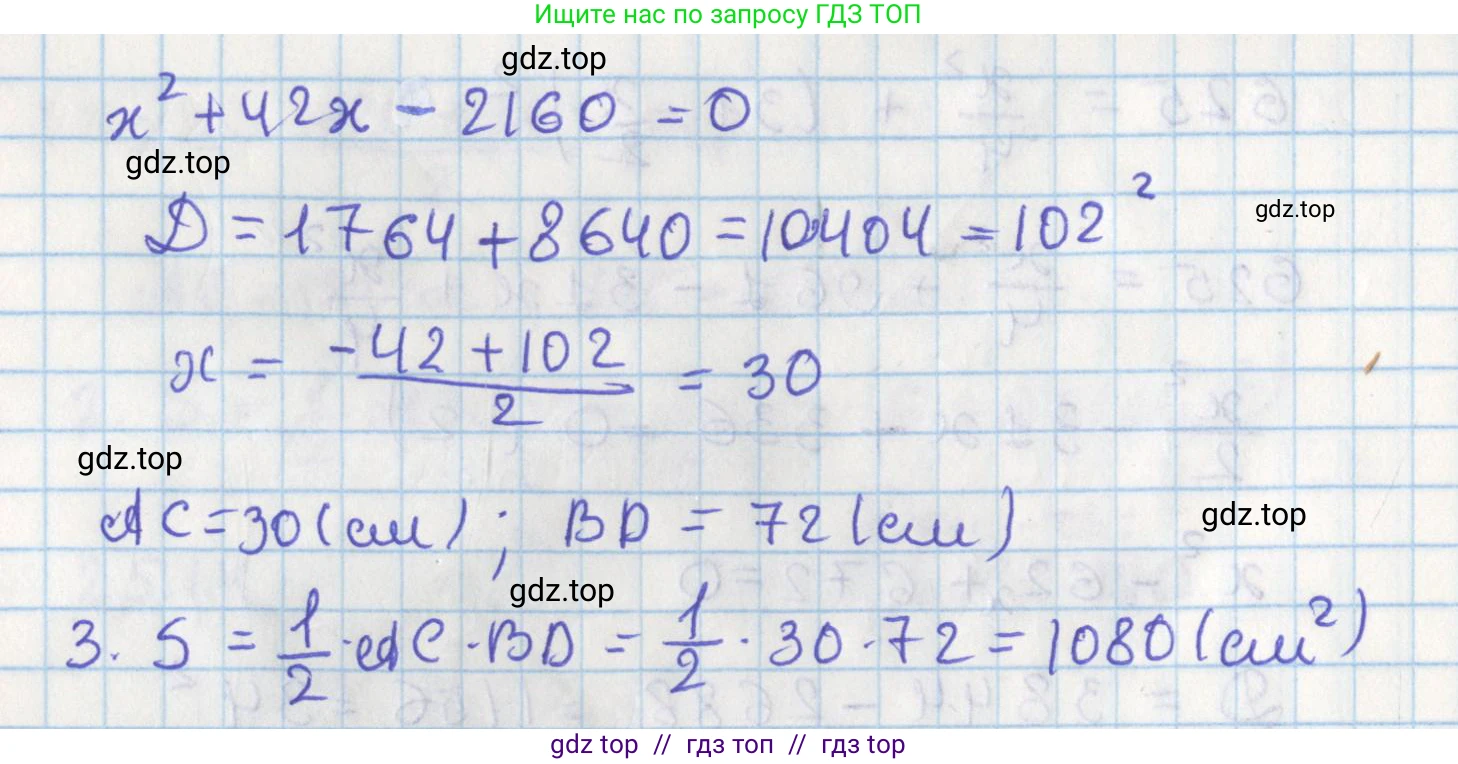 Ищите нас по запросу ГДЗ ТОП
gdz.top
x² + 42x - 2160 = 0
gdz.top
D = 1764 + 8640 = 10404 = 102²
gdz.top
x = (-42 + 102)/2 = 30
gdz.top
AC = 30 (см) ; BD = 72 (см)
gdz.top
gdz.top
3. S = 1/2 · AC · BD = 1/2 · 30 · 72 = 1080 (см²)
gdz top // гдз топ // гдз top